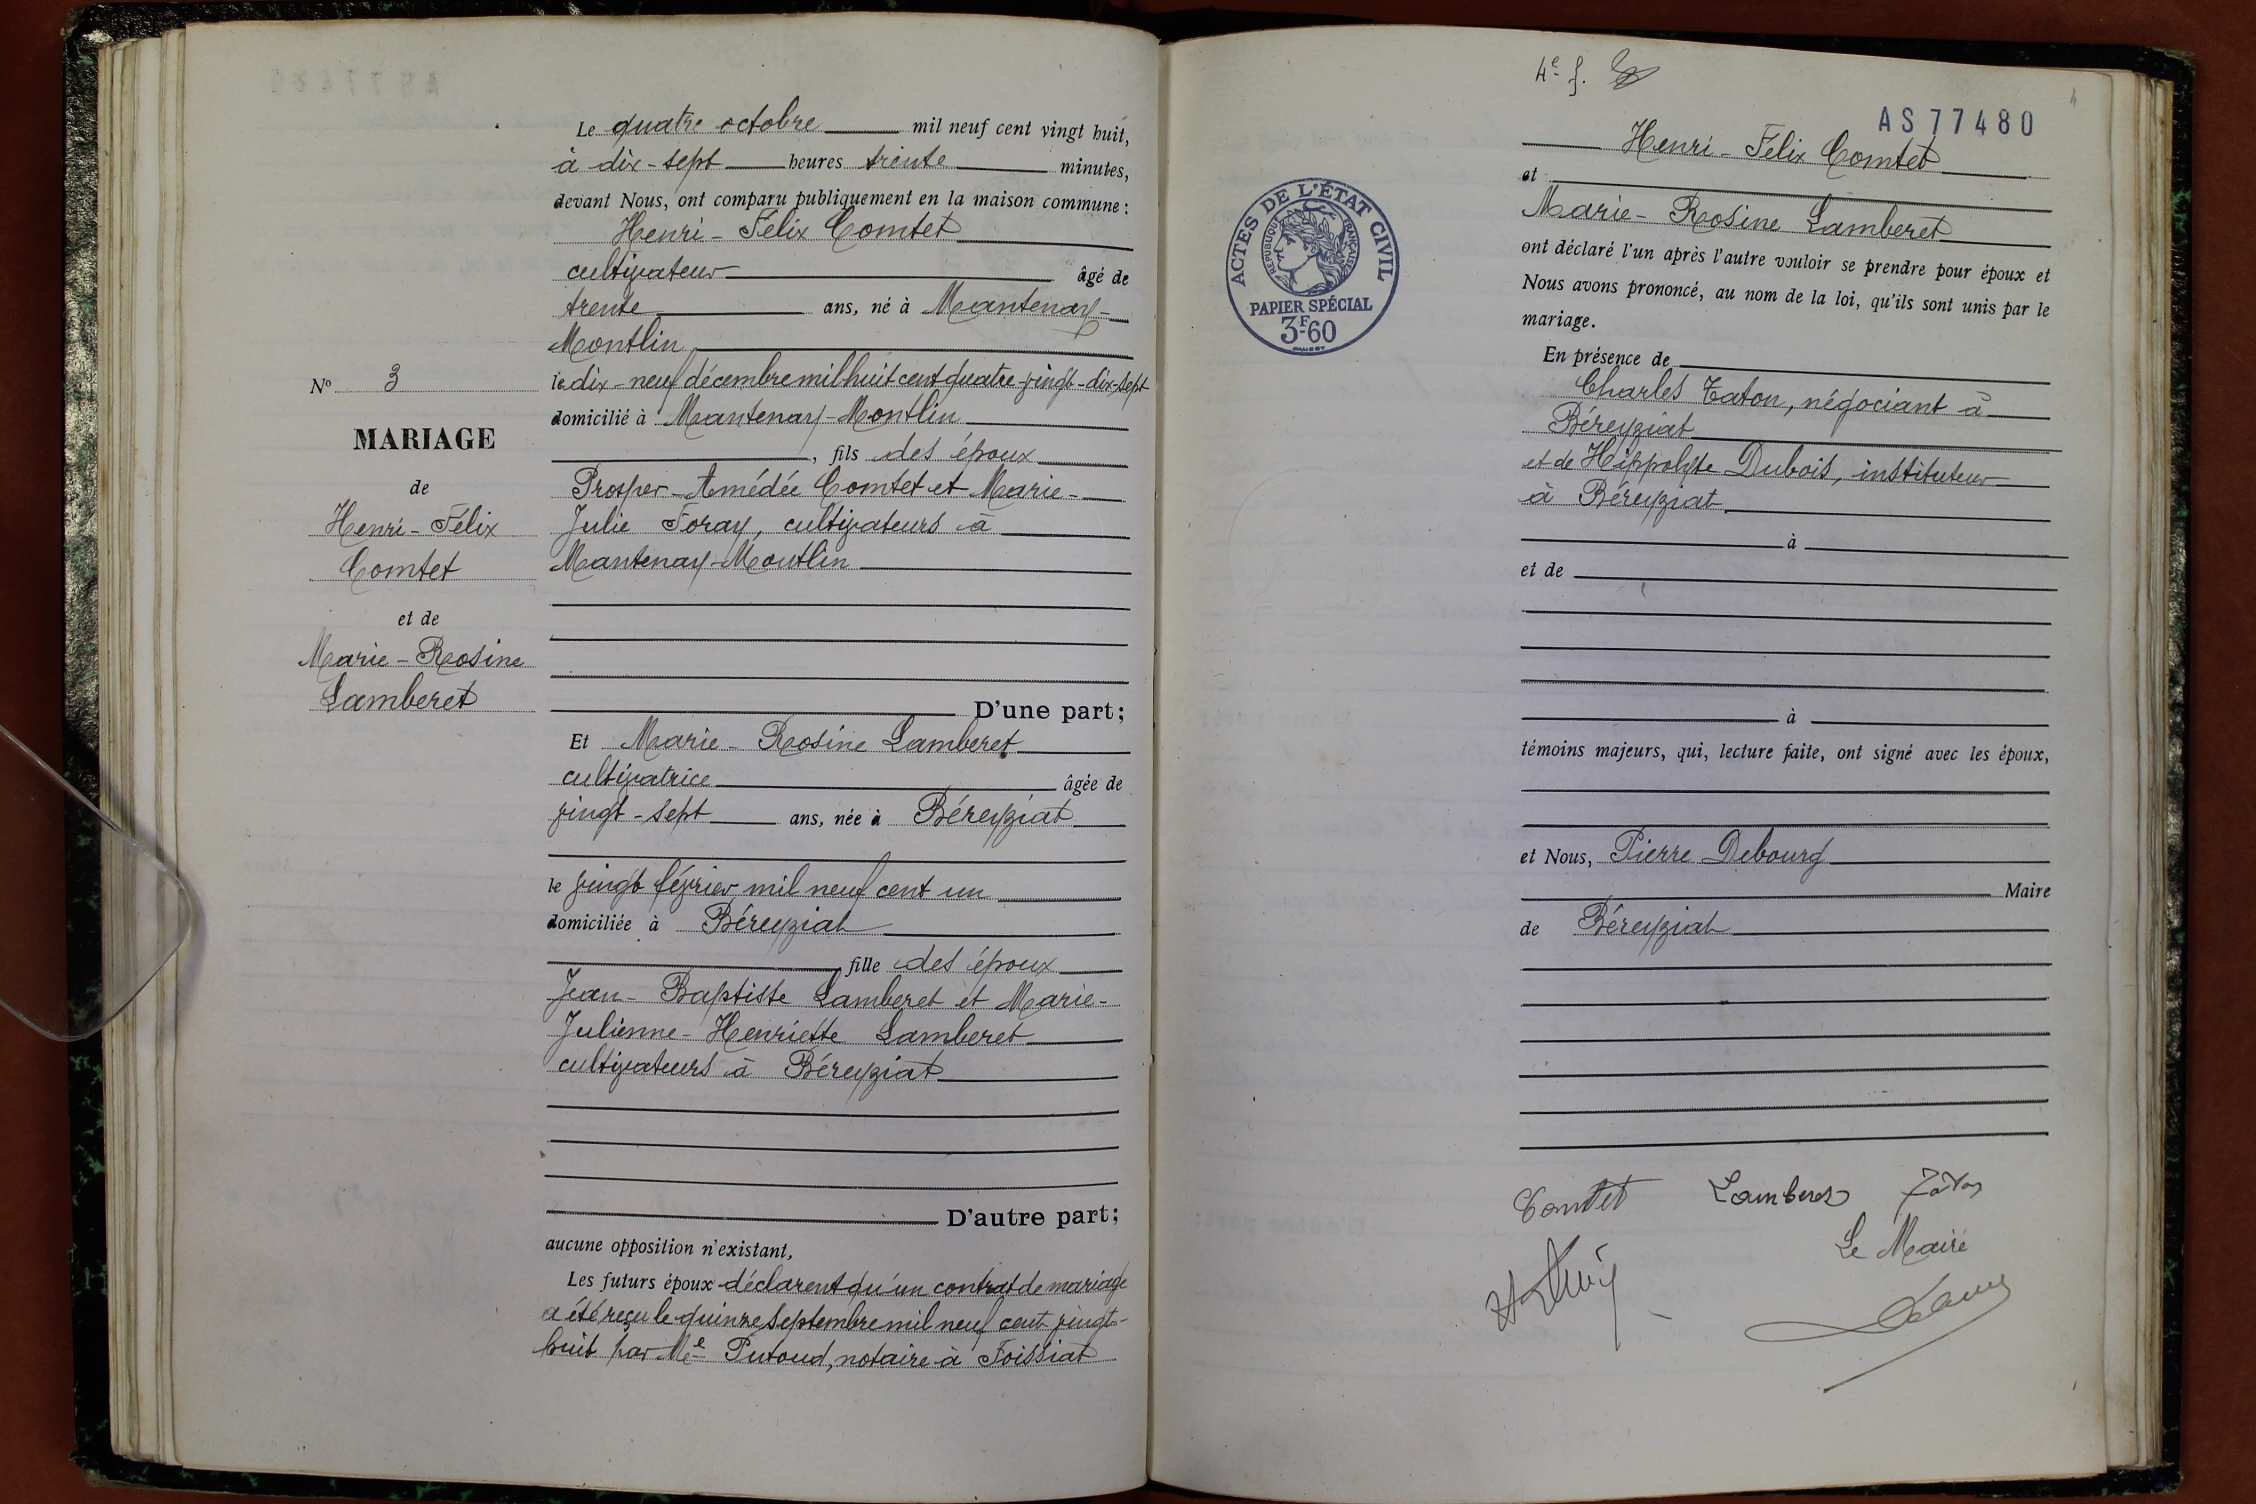 Le quatre octobre mil neuf cent vingt huit,
à dix-sept heures trente minutes,
devant Nous, ont comparu publiquement en la maison commune :
Henri-Félix Comtet
cultivateur âgé de
trente ans, né à Mantenay-
Montlin
le dix-neuf décembre mil huit cent quatre-vingt-dix-sept
domicilié à Mantenay-Montlin
, fils des époux
Prosper-Amédée Comtet et Marie-
Julie Foray, cultivateurs à
Mantenay-Montlin
N° 3
MARIAGE
de
Henri-Félix
Comtet
et de
Marie-Rosine
Lamberet
D'une part;
Et Marie-Rosine Lamberet
cultivatrice âgée de
vingt-sept ans, née à Béreyziat
le vingt février mil neuf cent un
domiciliée à Béreyziat
fille des époux
Jean-Baptiste Lamberet et Marie-
Julienne-Henriette Lamberet
cultivateurs à Béreyziat
D'autre part;
aucune opposition n'existant,
Les futurs époux déclarent qu'un contrat de mariage
a été reçu le quinze septembre mil neuf cent vingt-
huit par Me Putoud, notaire à Foissiat
4e f.
AS 77480
Henri-Félix Comtet
et
Marie-Rosine Lamberet
ont déclaré l'un après l'autre vouloir se prendre pour époux et
Nous avons prononcé, au nom de la loi, qu'ils sont unis par le
mariage.
En présence de
Charles Taton, négociant à
Béreyziat
et de Hippolyte Dubois, instituteur
à Béreyziat
à
et de
à
témoins majeurs, qui, lecture faite, ont signé avec les époux,
et Nous, Pierre Debourg
Maire
de Béreyziat
Comtet Lamberet Taton
Le Maire
ACTES DE L'ÉTAT CIVIL
RÉPUBLIQUE FRANÇAISE
PAPIER SPÉCIAL
3F60